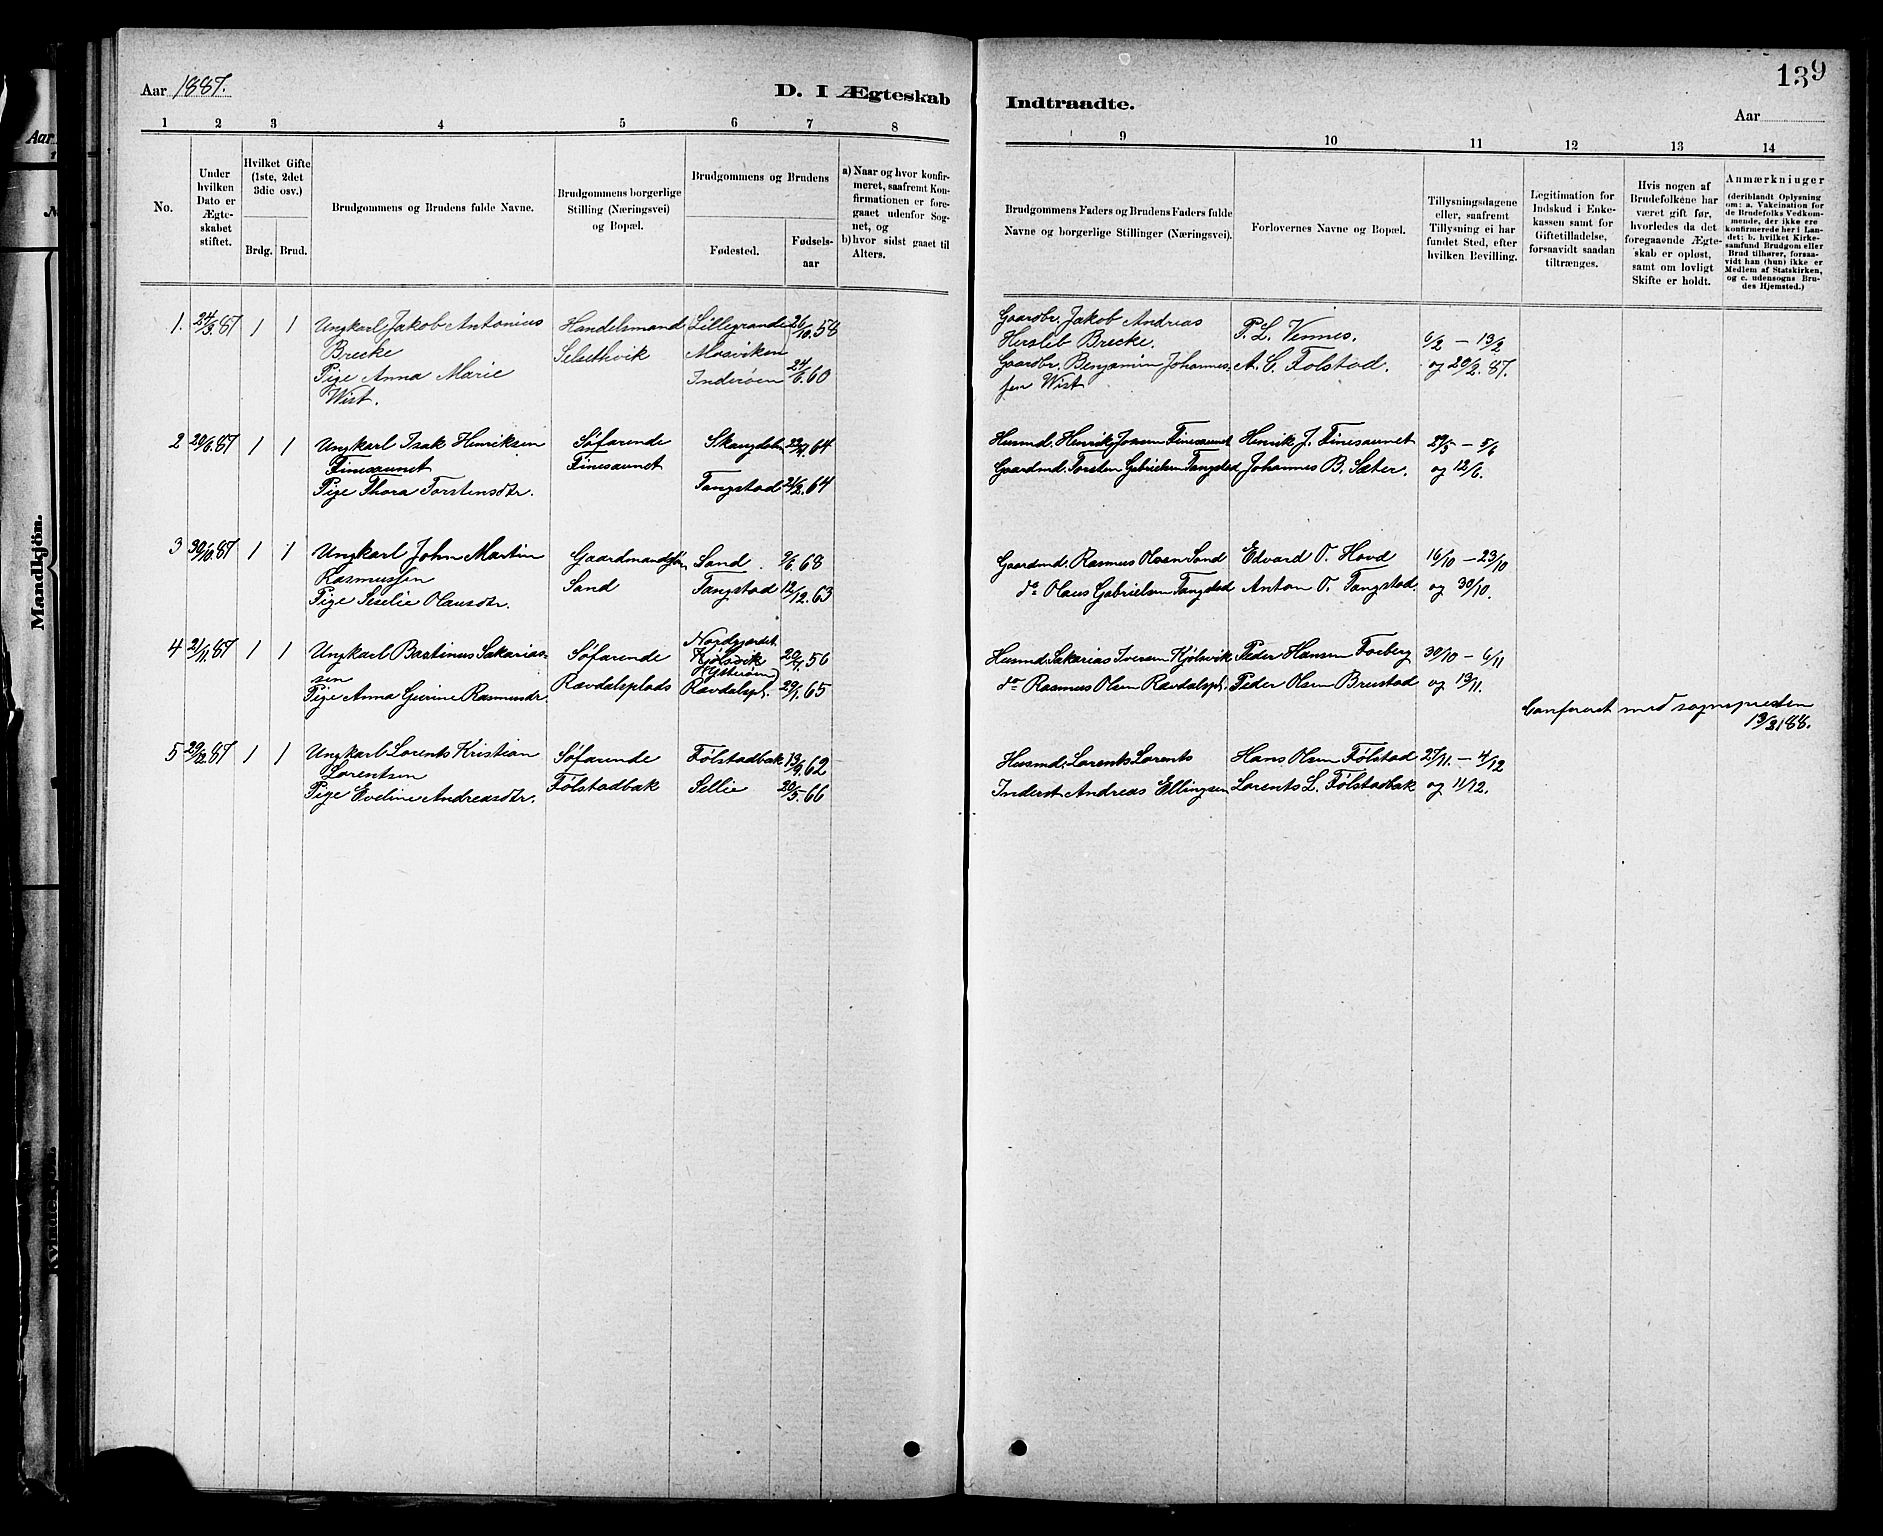 Aar 1887.
D. I Ægteskab
Indtraadte.
139
Aar
1 2 3 4 5 6 7 8 9 10 11 12 13 14
No.
Under hvilken Dato er Ægte- skabet stiftet.
Hvilket Gifte (1ste, 2det 3die osv.)
Brdg. Brud.
Brudgommens og Brudens fulde Navne.
Brudgommens borgerlige Stilling (Næringsvei) og Bopæl.
Brudgommens og Brudens
Fødested.
Fødsels- aar
a) Naar og hvor konfir- meret, saafremt Kon- firmationen er fore- gaaet udenfor Sog- net, og
b) hvor sidst gaaet til Alters.
Brudgommens Faders og Brudens Faders fulde Navne og borgerlige Stillinger (Næringsvei).
Forlovernes Navne og Bopæl.
Tillysningsdagene eller, saafremt Tillysning ei har fundet Sted, efter hvilken Bevilling.
Legitimation for Indskud i Enke- kassen samt for Giftetilladelse, forsaavidt saadan tiltrænges.
Hvis nogen af Brudefolkene har været gift før, hvorledes da det foregaaende Ægte- skab er opløst, samt om lovligt Skifte er holdt.
Anmærkninger
(deriblandt Oplysning om: a. Vakcination for de Brudefolks Vedkom- mende, der ikke ere konfirmerede her i Lan- det; b. hvilket Kirke- samfund Brudgom eller Brud tilhører, forsaa- vidt han (hun) ikke er Medlem af Statskirken, og c. udensogns Bru- des Hjemsted.)
1. 24/3.87 1 1 Ungkarl Jakob Antonius Handelsmand Lillegrande 26/10.58 Gaardbr. Jakob Andreas
Brecke Selsethvik Mosviken Hersleb Brecke. P. L. Vennes. 6/2 – 13/2
Pige Anna Marie Inderøen 24/6.60 Gaardbr. Benjamin Johannes- A. C. Følstad. og 20/2.87.
Wist. sen Wist
2 20/6.87 1 1 Ungkarl Isak Henriksen Søfarende Skangdalen 64 Husmd. Henrik Jonsen Finesaunet Henrik J. Finesaunet 29/5 – 5/6
Finesaunet Finesaunet Gaardmd. Torsten Gabrielsen Tangstad Johannes B. Sæter. og 12/6.
Pige Thora Torstensdtr. Tangstad 24/2.64
3 30/10.87 1 1 Ungkarl John Martin Gaardmandssøn Sand 9/6.68 Gaardmd. Rasmus Olsen Sand Edvard O. Hovd 16/10 – 23/10
Rasmussen Sand Tangstad 12/12.63 do Olaus Gabrielsen Tangstad Anton O. Tangstad. og 30/10.
Pige Seselie Olausdtr.
4 21/11.87 1 1 Ungkarl Bastinus Sakarias- Søfarende Nordgjærdet
Kjølsvik 20/1.56 Husmd. Sakarias Iversen Kjølsvik Peder Hansen Forberg 30/10 – 6/11
sen Hitterøen)
Pige Anna Gurine Rasmusdr. Rævdalsplads Rævdalspl. 29/1.65 do Rasmus Olsen Rævdalspl. Peder Olsen Brustad og 13/11.
Confereret med sognepresten
13/2 188.
5 29/12.87 1 1 Ungkarl Lorents Kristian Søfarende Følstadbak 13/9.62 Husmd. Lorents Lorents Hans Olsen Følstad 27/11. – 4/12
Lorentsen
Pige Eveline Andreasdtr. Følstadbak Sellie 20/5.66 Inderst Andreas Ellingsen Lorents L. Følstadbak og 11/12.
Aar
Mandkjøn.